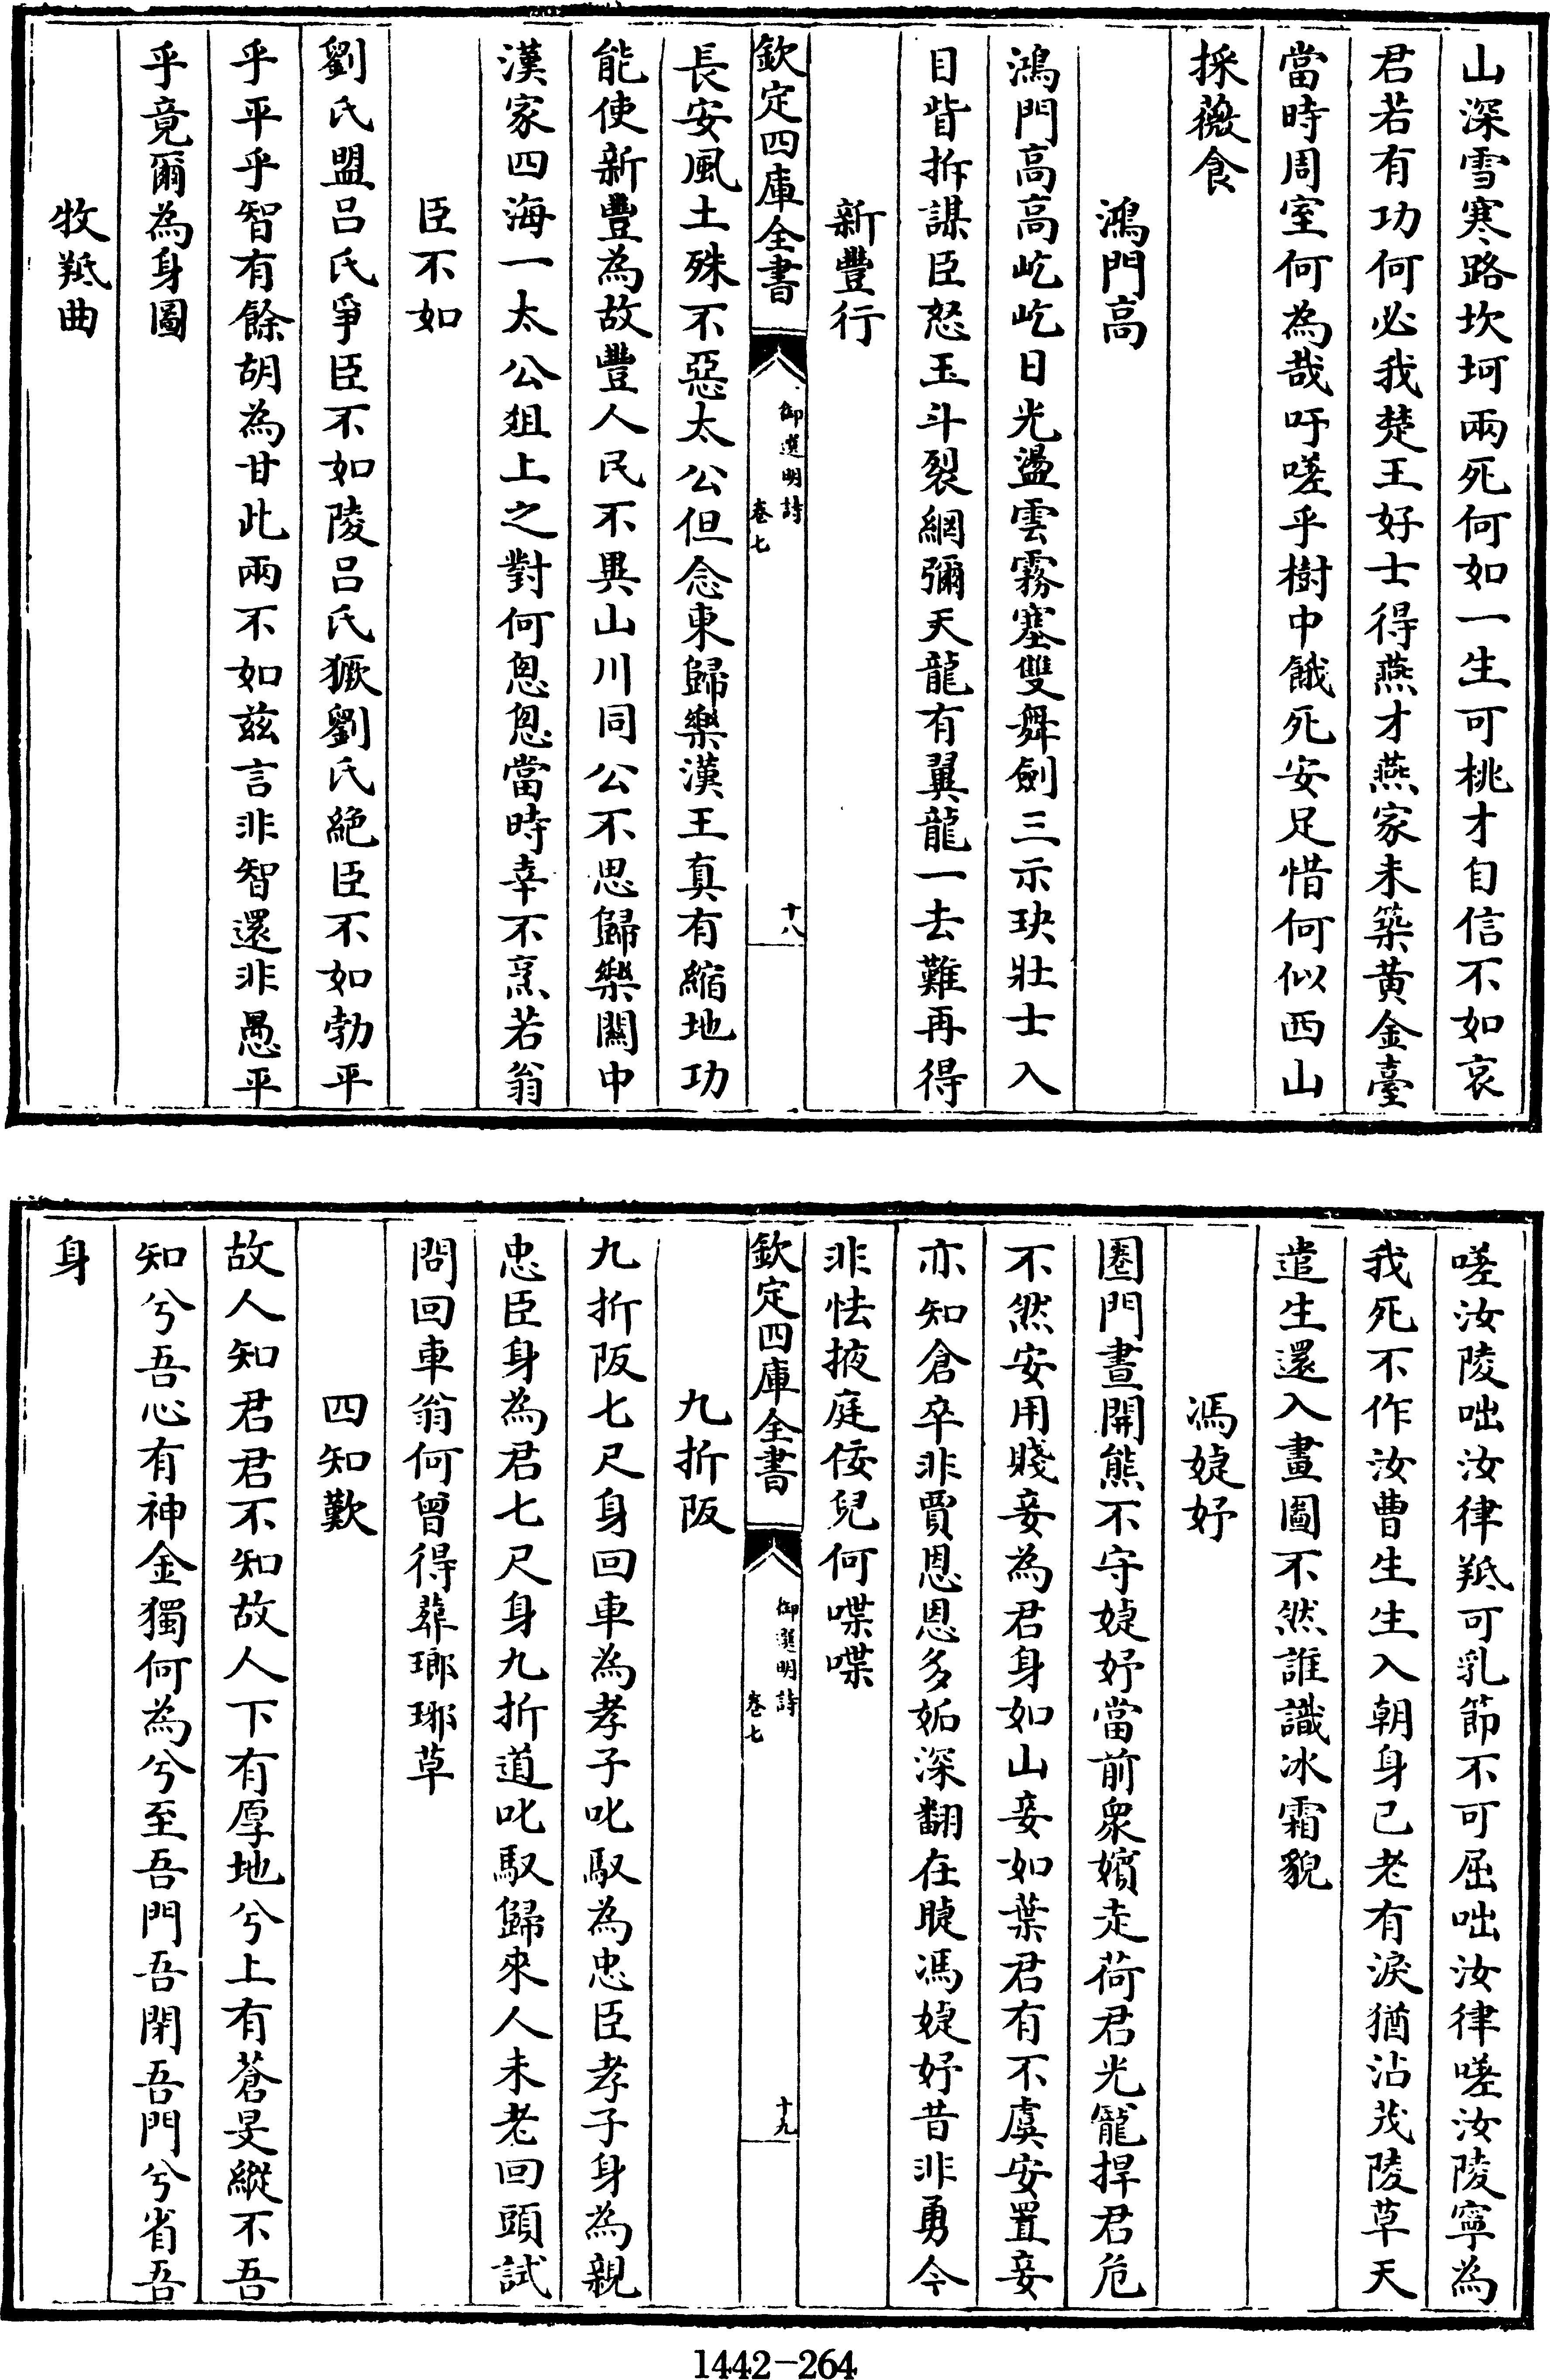 山深雪寒路坎坷兩死何如一生可桃才自信不如哀
君若有功何必我楚王好士得燕才燕家未築黃金臺
當時周室何為哉吁嗟乎樹中餓死安足惜何似西山
採薇食
鴻門高
鴻門高高屹屹日光盪雲霧塞雙舞劍三示玦壯士入
目眥拆謀臣怒玉斗裂網彌天龍有翼龍一去難再得
新豐行
欽定四庫全書
御選明詩
卷七
十八
長安風土殊不惡太公但念東歸樂漢王真有縮地功
能使新豐為故豐人民不異山川同公不思歸樂關中
漢家四海一太公俎上之對何悤悤當時幸不烹若翁
臣不如
劉氏盟呂氏爭臣不如陵呂氏獗劉氏絕臣不如勃平
乎平乎智有餘胡為甘此兩不如兹言非智還非愚平
乎竟爾為身圖
牧羝曲
嗟汝陵咄汝律羝可乳節不可屈咄汝律嗟汝陵寧為
我死不作汝曹生生入朝身已老有淚猶沾茂陵草天
遣生還入畫圖不然誰識冰霜貌
馮婕妤
圈門晝開熊不守婕妤當前衆嬪走荷君光寵捍君危
不然安用賤妾為君身如山妾如葉君有不虞安置妾
亦知倉卒非賈恩恩多妬深翻在睫馮婕妤昔非勇今
非怯掖庭佞兒何喋喋
欽定四庫全書
御選明詩
卷七
十九
九折阪
九折阪七尺身回車為孝子叱馭為忠臣孝子身為親
忠臣身為君七尺身九折道叱馭歸來人未老回頭試
問回車翁何曾得葬瑯琊草
四知歎
故人知君君不知故人下有厚地兮上有蒼旻縱不吾
知兮吾心有神金獨何為兮至吾門吾閉吾門兮省吾
身
1442-264